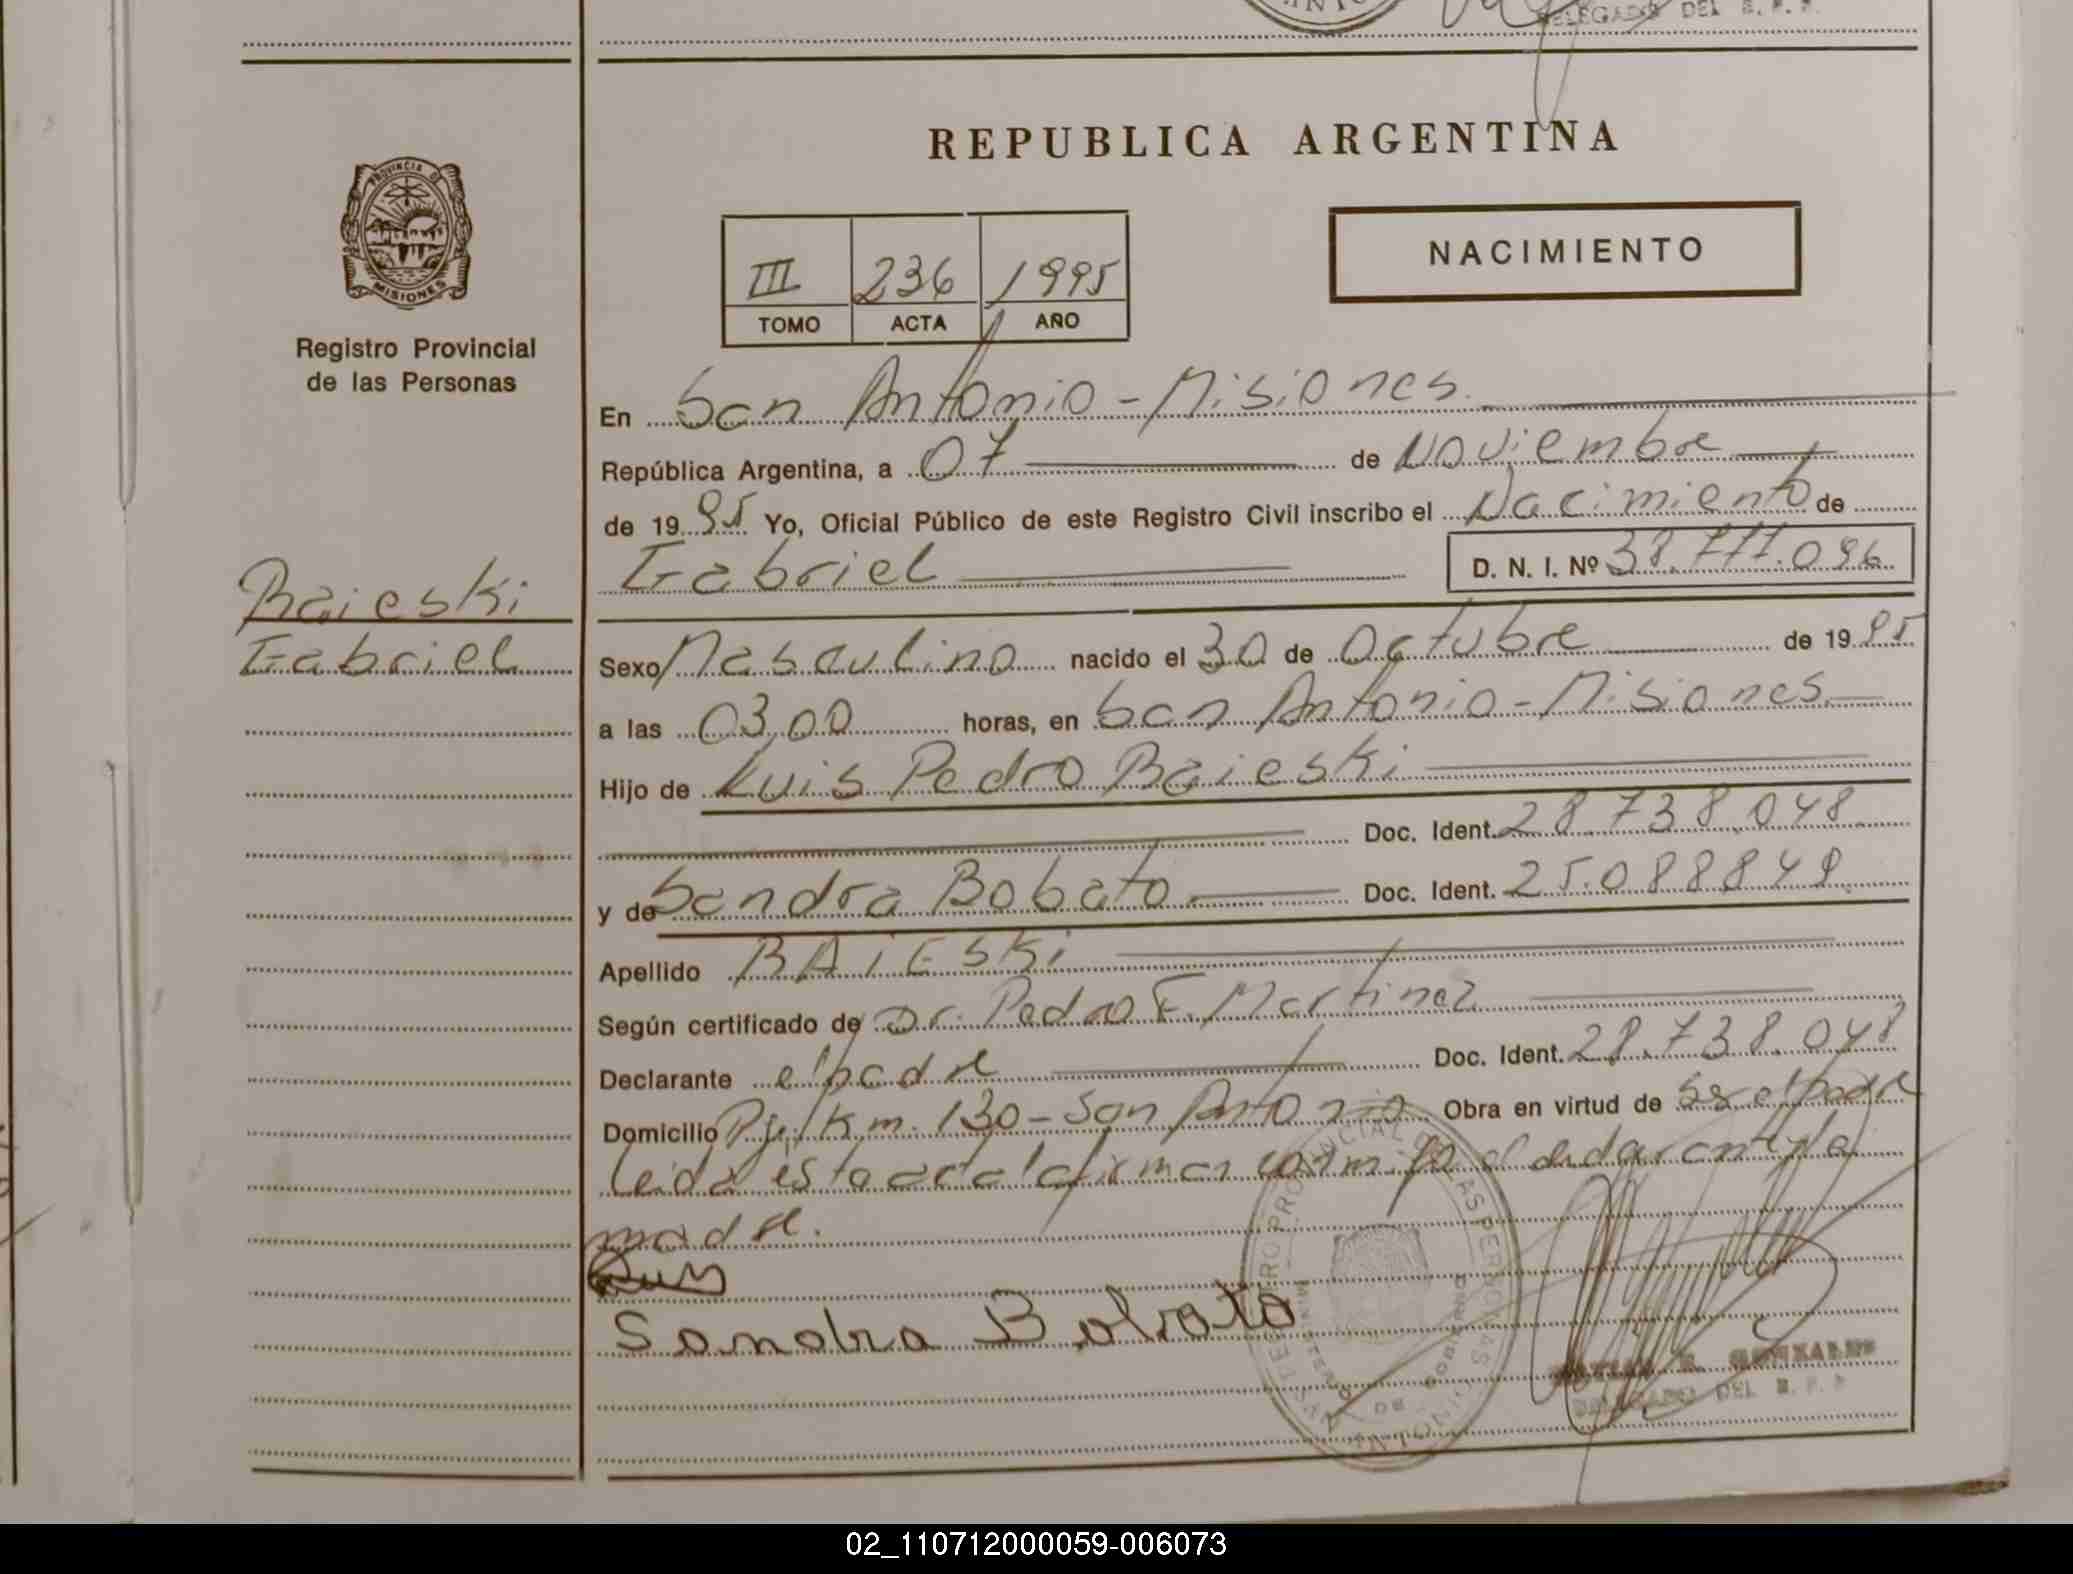 DELEGADO DEL R. P. P.
REPUBLICA ARGENTINA
PROVINCIA DE
MISIONES
Registro Provincial
de las Personas
NACIMIENTO
III 236 1995
TOMO ACTA AÑO
En San Antonio - Misiones
República Argentina, a 07 de Noviembre
de 1995 Yo, Oficial Público de este Registro Civil inscribo el Nacimiento de
Gabriel D. N. I. Nº 38.777.096
Baieski
Gabriel
Sexo Masculino nacido el 30 de Octubre de 1995
a las 03,00 horas, en San Antonio - Misiones
Hijo de Luis Pedro Baieski
Doc. Ident. 28.738.048
y de Sandra Bobato Doc. Ident. 25.088849
Apellido BAIESKI
Según certificado de Dr. Pedro F. Martinez
Declarante el padre Doc. Ident. 28.738.048
Domicilio Pje. Km. 130 - San Antonio Obra en virtud de ser el padre
Leida esta acta la firman conmigo el declarante y la
madre.
Luis
Sandra Bobato
REGISTRO PROVINCIAL DE LAS PERSONAS
MINISTERIO DE GOBIERNO
GONZALES
DELEGADO DEL R. P. P.
02_110712000059-006073